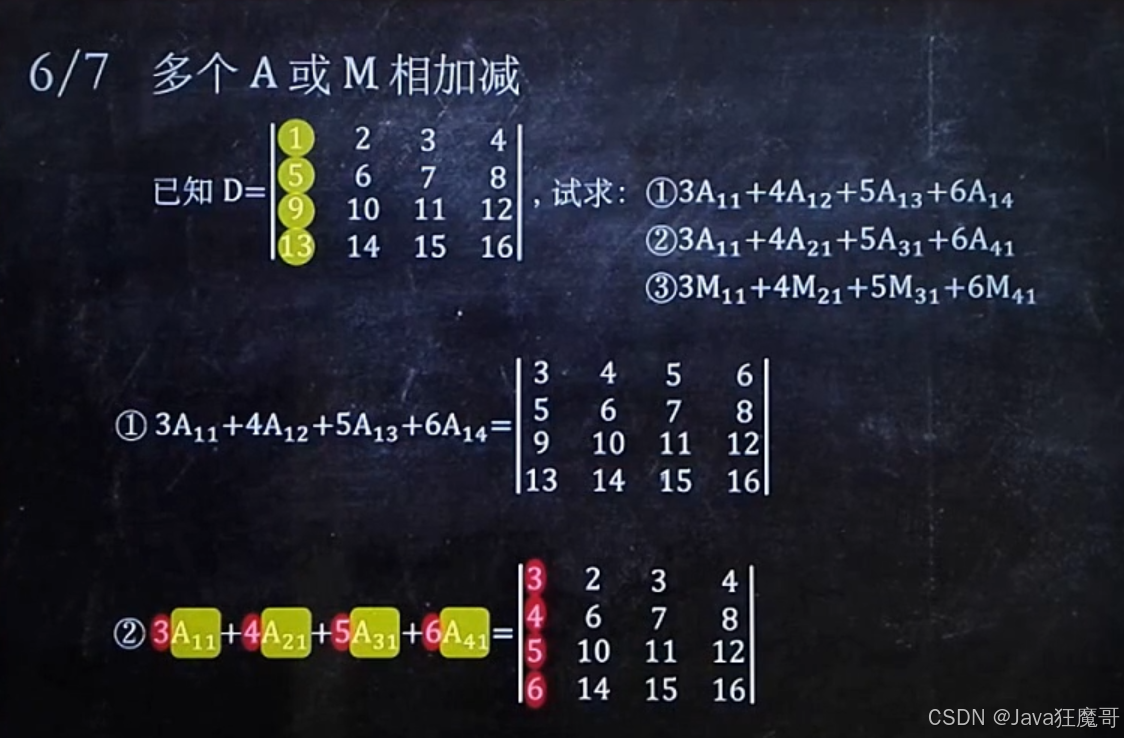 6/7 多个 A 或 M 相加减
已知 D=
1 2 3 4
5 6 7 8
9 10 11 12
13 14 15 16
, 试求：
①3A₁₁+4A₁₂+5A₁₃+6A₁₄
②3A₁₁+4A₂₁+5A₃₁+6A₄₁
③3M₁₁+4M₂₁+5M₃₁+6M₄₁
① 3A₁₁+4A₁₂+5A₁₃+6A₁₄=
3 4 5 6
5 6 7 8
9 10 11 12
13 14 15 16
② 3A₁₁+4A₂₁+5A₃₁+6A₄₁=
3 2 3 4
4 6 7 8
5 10 11 12
6 14 15 16
CSDN @Java狂魔哥